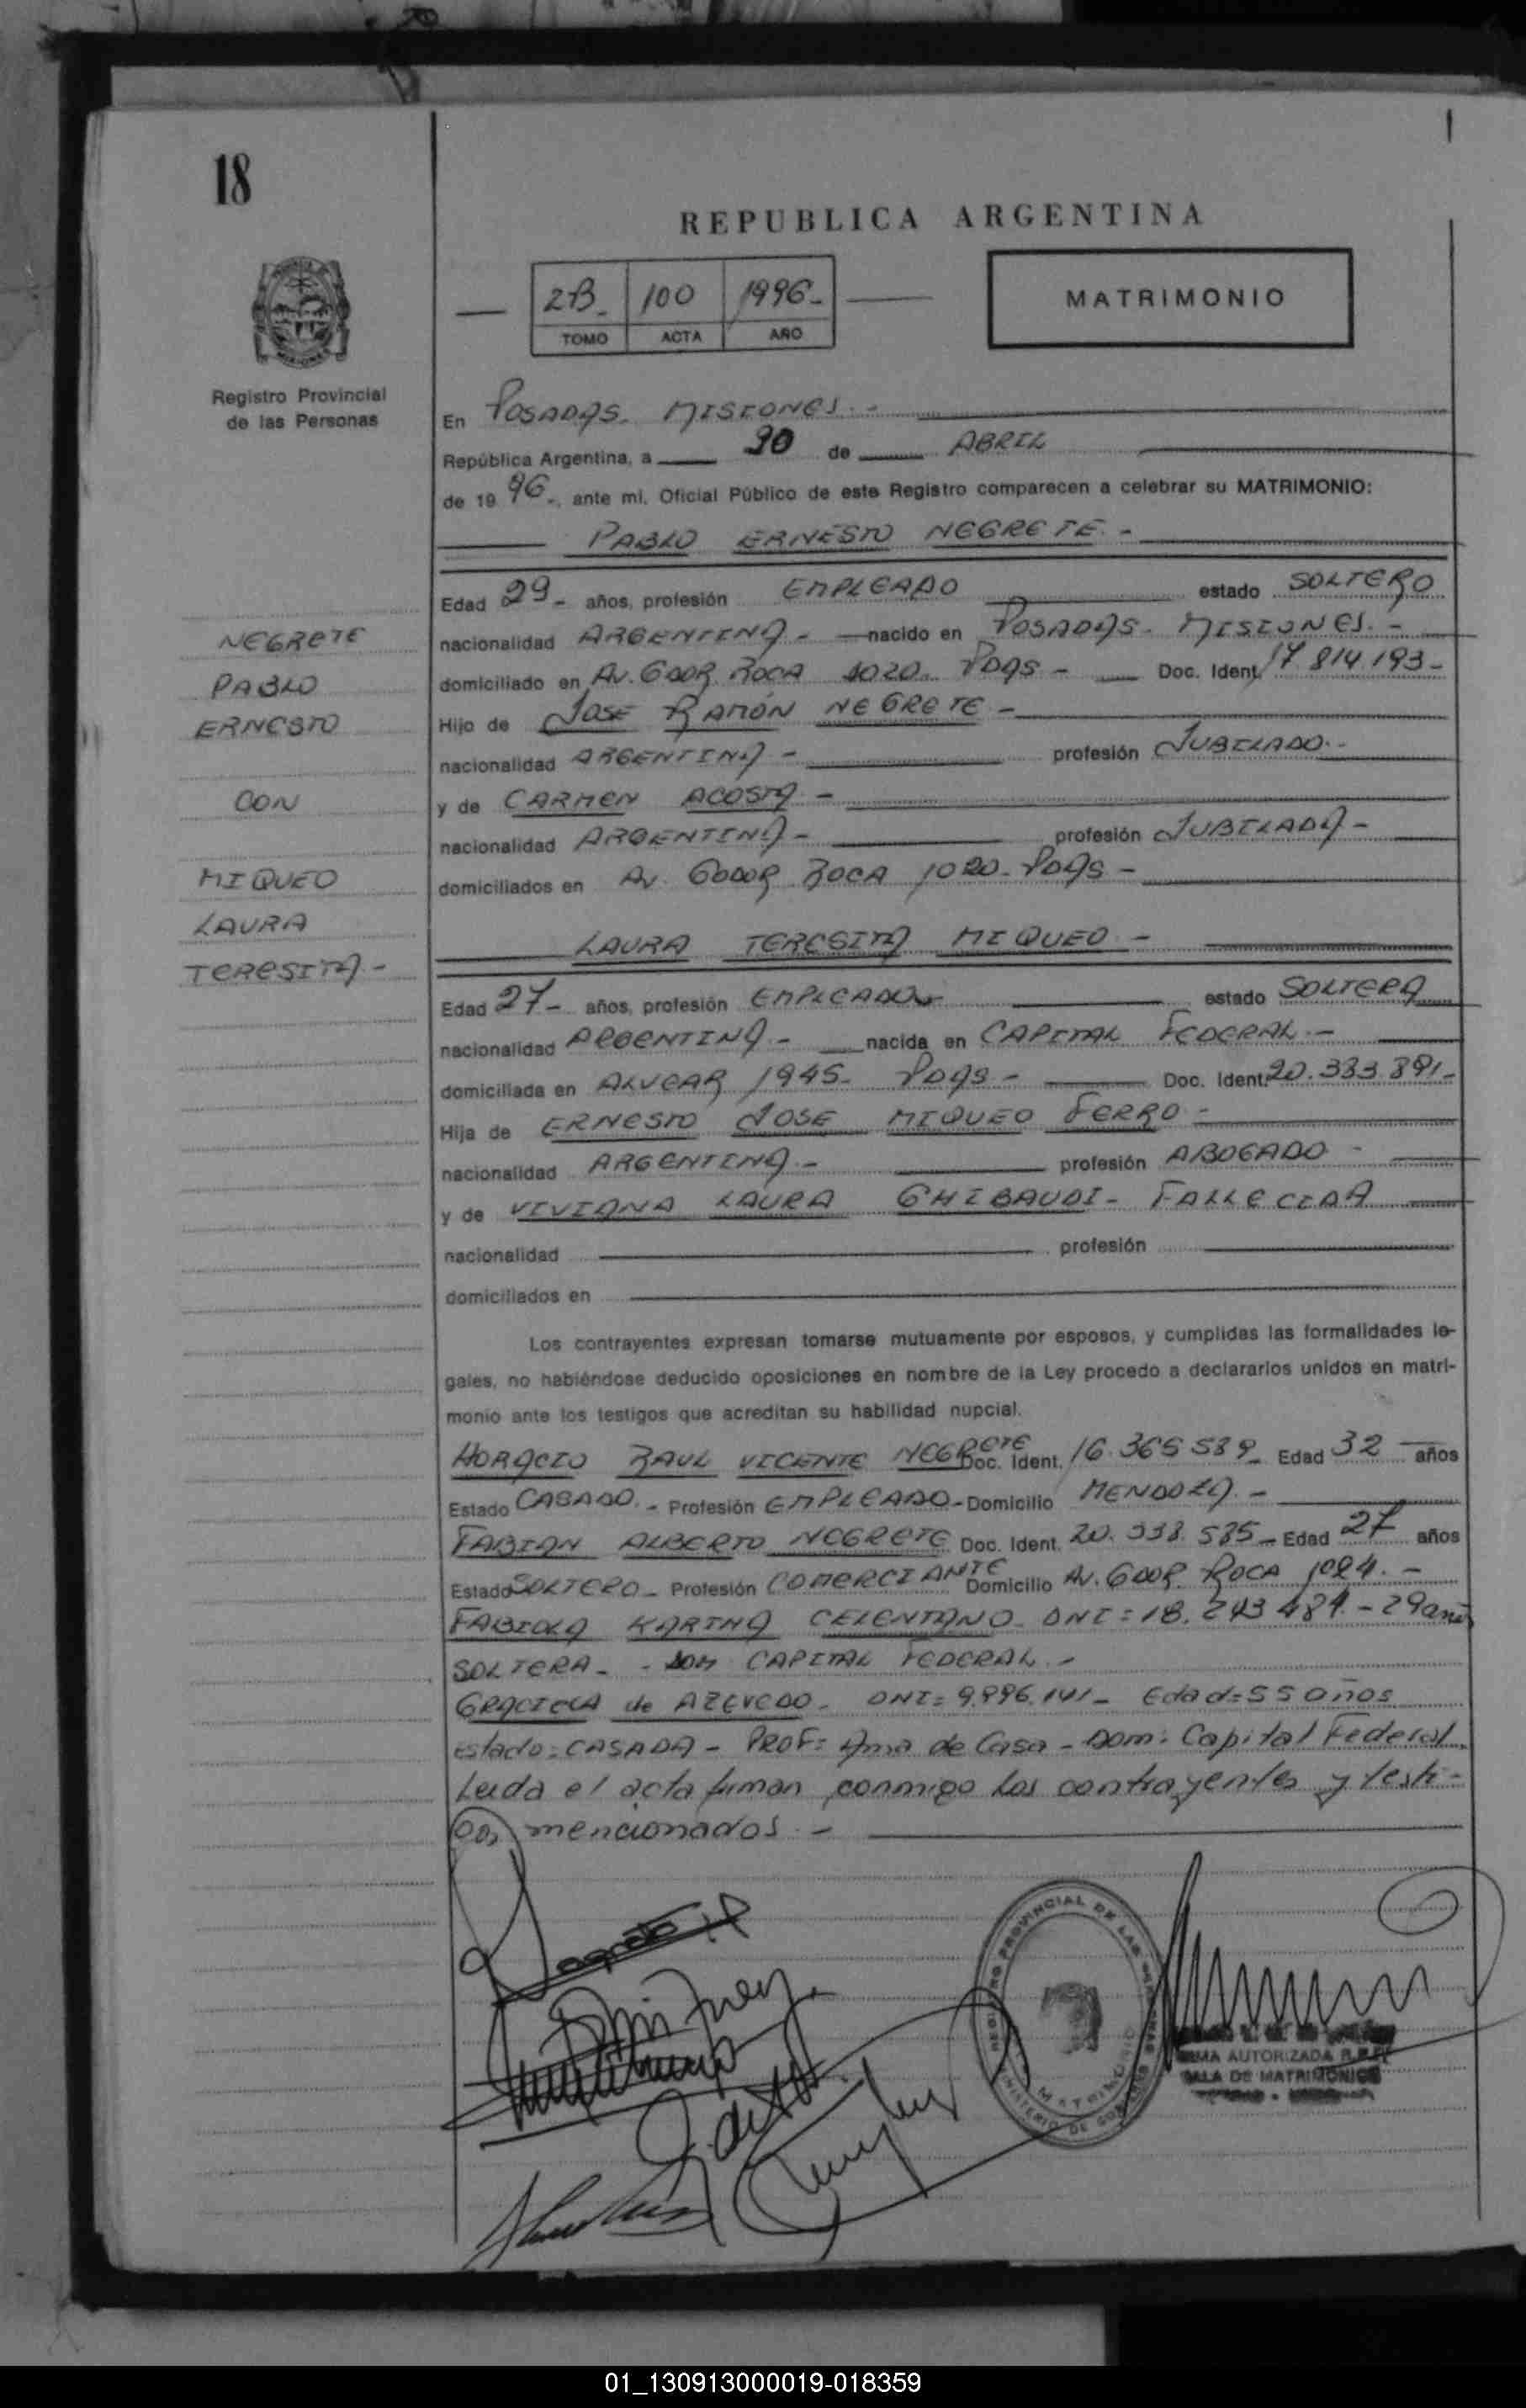 18
REPUBLICA ARGENTINA
2B_ 100 1996_
TOMO ACTA AÑO
MATRIMONIO
Registro Provincial
de las Personas
En POSADAS. MISIONES.-
República Argentina, a 30 de ABRIL
de 19 96-, ante mí, Oficial Público de este Registro comparecen a celebrar su MATRIMONIO:
PABLO ERNESTO NEGRETE.-
Edad 29- años, profesión EMPLEADO estado SOLTERO
nacionalidad ARGENTINA- nacido en POSADAS- MISIONES.-
domiciliado en AV. GDOR. ROCA 1020. PDAS- Doc. Ident. 17.814.193-
Hijo de JOSE RAMÓN NEGRETE-
nacionalidad ARGENTINA- profesión JUBILADO.-
y de CARMEN ACOSTA-
nacionalidad ARGENTINA- profesión JUBILADA-
domiciliados en AV. GDOR ROCA 1020- PDAS-
NEGRETE
PABLO
ERNESTO
CON
MIQUEO
LAURA
TERESITA-
LAURA TERESITA MIQUEO-
Edad 27- años, profesión EMPLEADA estado SOLTERA
nacionalidad ARGENTINA.- nacida en CAPITAL FEDERAL.-
domiciliada en ALVEAR 1945- PDAS- Doc. Ident. 20.383.891-
Hija de ERNESTO JOSE MIQUEO FERRO-
nacionalidad ARGENTINA.- profesión ABOGADO-
y de VIVIANA LAURA GHIBAUDI- FALLECIDA
nacionalidad profesión
domiciliados en
Los contrayentes expresan tomarse mutuamente por esposos, y cumplidas las formalidades le-
gales, no habiéndose deducido oposiciones en nombre de la Ley procedo a declararlos unidos en matri-
monio ante los testigos que acreditan su habilidad nupcial.
HORACIO RAUL VICENTE NEGRETE Doc. Ident. 16.365.589- Edad 32 años
Estado CASADO.- Profesión EMPLEADO- Domicilio MENDOZA.-
FABIAN ALBERTO NEGRETE Doc. Ident. 20.338.585- Edad 27 años
Estado SOLTERO- Profesión COMERCIANTE Domicilio AV. GDOR. ROCA 1024.-
FABIOLA KARINA CELENTANO- DNI: 18.243.484.- 29 años
SOLTERA- - DOM CAPITAL FEDERAL.-
GRACIELA de AZEVEDO- DNI= 9.996.141- Edad=55 años
estado: CASADA- PROF= Ama de Casa- Dom: Capital Federal.
Leída el acta firman conmigo los contrayentes y testi-
gos mencionados.-
REGISTRO PROVINCIAL DE LAS PERSONAS
MATRIMONIO
MINISTERIO DE GOBIERNO
FIRMA AUTORIZADA R.P.P.
SALA DE MATRIMONIOS
01_130913000019-018359